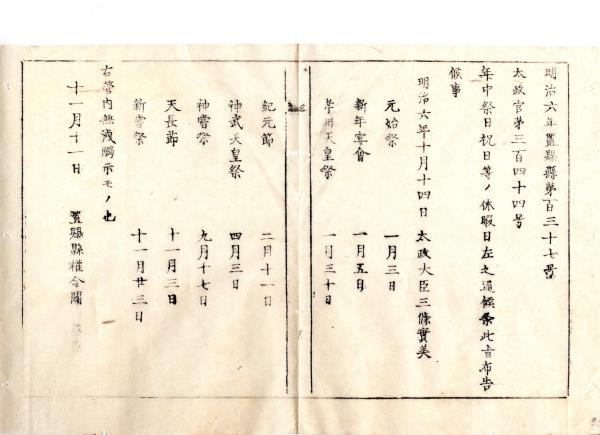 明治六年置賜縣第百三十七号
太政官第三百四十四号
年中祭日祝日等ノ休暇日左之通候条此旨布告
候事
明治六年十月十四日　太政大臣三條實美
元始祭　一月三日
新年宴會　一月五日
孝明天皇祭　一月三十日
紀元節　二月十一日
神武天皇祭　四月三日
神嘗祭　九月十七日
天長節　十一月三日
新嘗祭　十一月廿三日
右管内無洩觸示モノ也
十一月十一日　置賜縣權令關